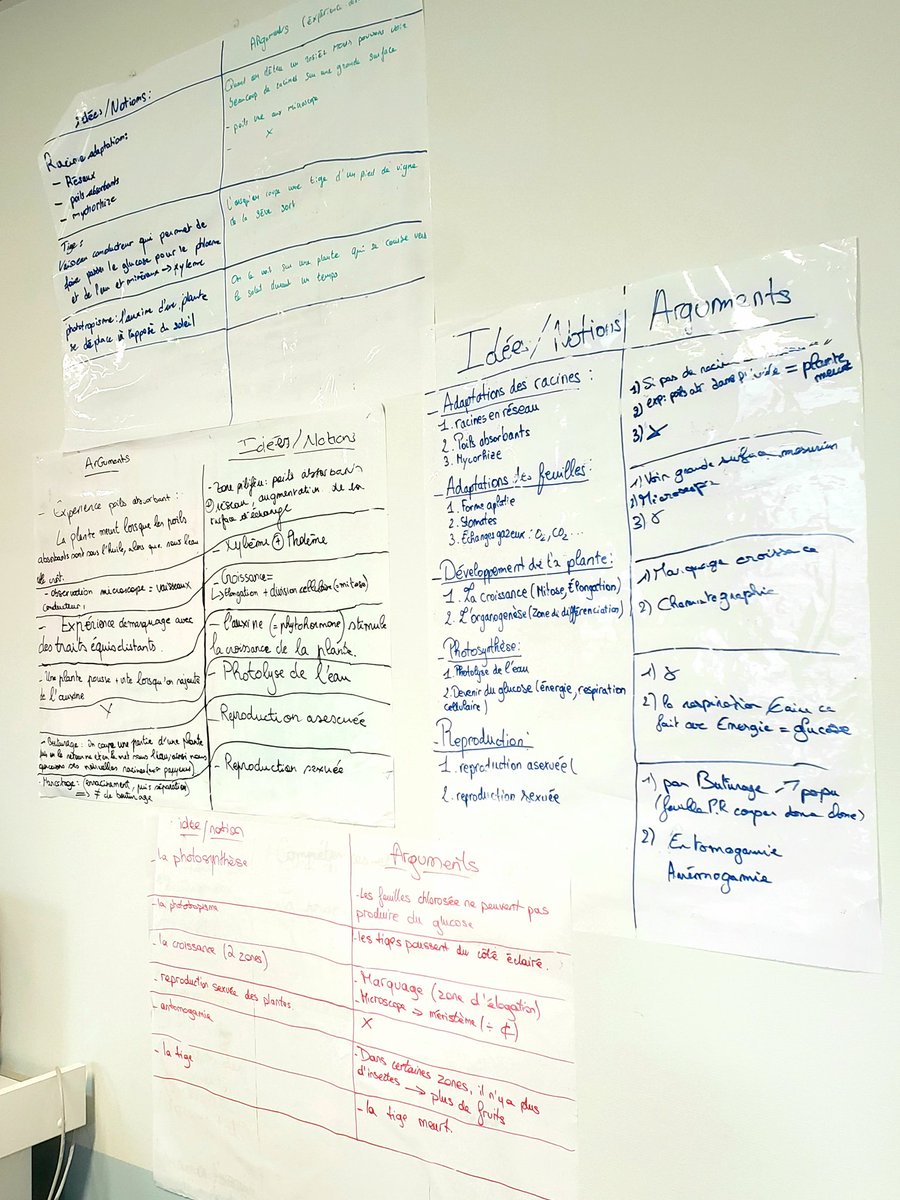 Idées/Notions:
Arguments (expérience
Racine adaptation:
- Réseaux
- poils absorbants
- mychorhize
Quant on déterre un rosier nous pouvons voir
beaucoup de racines sur une grande surface
- poils vue aux microscope
X
-
Tige:
Vaisseau conducteur qui permet de
faire passer le glucose pour le phloème
et de l'eau et minéraux → xylème
Lorsqu'on coupe une tige d'un pied de vigne
de la sève sort
phototropisme: l'auxine d'une plante
se déplace à l'opposé du soleil
On le vois sur une plante qui se courbe vers
le soleil durant un temps
Arguments
Idées/Notions
- Expérience poils absorbant :
La plante meurt lorsque les poils
absorbants sont sous l'huile, alors que sous l'eau
elle croit.
- Zone pilifère: poils absorbants
réseau, augmentation de la
surface d'échange
- observation microscope = vaisseaux
conducteurs
- Xylème + Phloème
- Expérience de marquage avec
des traits équisdistants.
- Croissance=
↳ Elongation + division cellulaire (= mitose)
- Une plante pousse + vite lorsqu'on rajoute
de l'auxine
- l'auxine (= phytohormone) stimule
la croissance de la plante.
X
- Photolyse de l'eau
- Bouturage: On coupe une partie d'une plante
- Reproduction asexuée
- Marcottage: (enracinement, puis séparation)
⇒ ≠ de bouturage
- Reproduction sexuée
Idées/Notions
Arguments
- Adaptations des racines :
1. racines en réseau
2. Poils absorbants
3. Mycorhize
1) Si pas de racine
2) exp: poils abs dans l'huile = plante
meurt
3) X
- Adaptations des feuilles:
1. Forme aplatie
2. Stomates
3. Échanges gazeux: O2, CO2...
1) Voir grande surface
2) Microscope
3) X
- Développement de la plante:
1. La croissance (Mitose, Élongation)
2. L'organogenèse (Zone de différenciation)
1) Marquage croissance
2) Chromatographie
- Photosynthèse:
1. Photolyse de l'eau
2. Devenir du glucose (énergie, respiration
cellulaire)
1) X
2) la respiration
fait avec Energie = glucose
- Reproduction:
1. reproduction asexuée (
2. reproduction sexuée
1) par Buturage
(feuille P.R couper donne clone)
2) Entomogamie
Anémogamie
idée/notion
Arguments
- la photosynthèse
- Les feuilles chlorosée ne peuvent pas
produire du glucose
- la phototropisme
- les tiges poussent du côté éclairé.
- la croissance (2 zones)
- Marquage (zone d'élogation)
- Microscope → méristème (÷ ¢)
- reproduction sexuée des plantes.
X
- antomogamie
- Dans certaines zones, il n'y a plus
d'insectes → plus de fruits
- la tige
- la tige meurt.